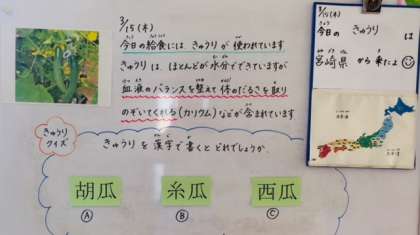 3/15(木)
今日の給食には きゅうりが 使われています
きゅうりは、ほとんどが水分でできていますが
血液のバランスを整えて体のだるさを取り
のぞいてくれる(カリウム)などが含まれています
きゅうり
クイズ
きゅうりを漢字で書くとどれでしょうか
胡瓜
糸瓜
西瓜
A
B
C
3/15(木)
今日の きゅうり は
宮崎県 から来たよ